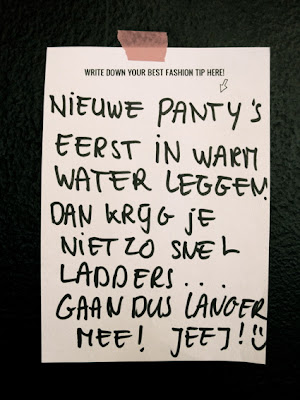 WRITE DOWN YOUR BEST FASHION TIP HERE!
NIEUWE PANTY'S
EERST IN WARM
WATER LEGGEN
DAN KRIJG JE
NIET ZO SNEL
LADDERS...
GAAN DUS LANGER
MEE! JEEJ!